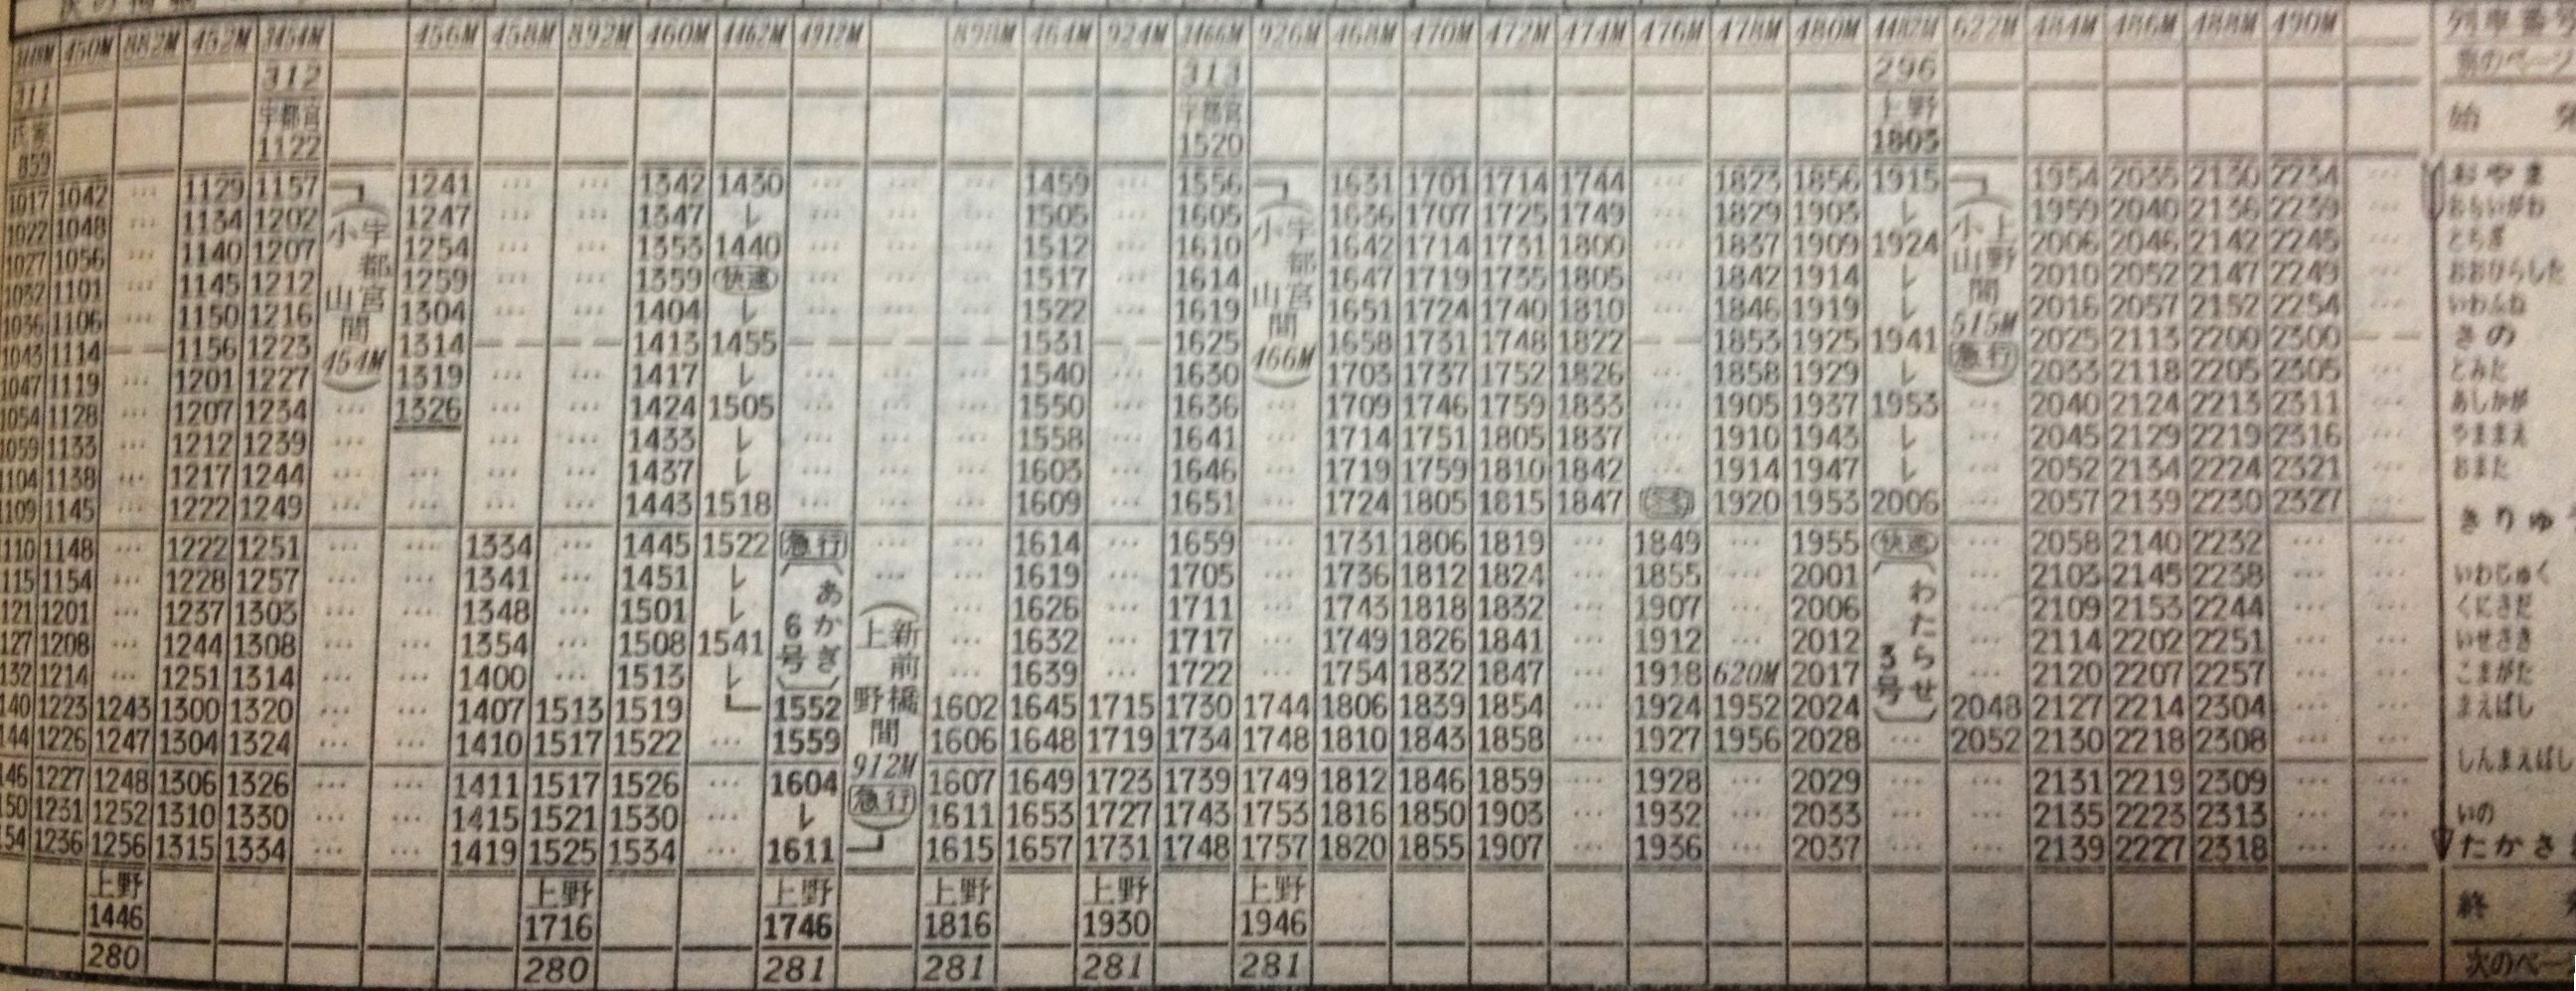 3448M 450M 882M 452M 3454M 456M 458M 892M 460M 4462M 4912M 898M 464M 924M 3466M 926M 468M 470M 472M 474M 476M 478M 480M 4482M 622M 484M 486M 488M 490M 列車番号
311 312 313 296 前のページ
氏家 宇都宮 宇都宮 上野 始 発
859 1122 1520 1803
1017 1042 … 1129 1157 1241 … … 1342 1430 … … … 1459 … 1556 1631 1701 1714 1744 … 1823 1856 1915 1954 2035 2130 2234 … おやま
1022 1048 … 1134 1202 1247 … … 1347 レ … … … 1505 … 1605 1636 1707 1725 1749 … 1829 1903 レ 1959 2040 2136 2239 … おもいがわ
1027 1056 … 1140 1207 1254 … … 1353 1440 … … … 1512 … 1610 1642 1714 1731 1800 … 1837 1909 1924 2006 2046 2142 2245 … とちぎ
1032 1101 … 1145 1212 1259 … … 1359 快速 … … … 1517 … 1614 1647 1719 1735 1805 … 1842 1914 レ 2010 2052 2147 2249 … おおひらした
1036 1106 … 1150 1216 1304 … … 1404 レ … … … 1522 … 1619 1651 1724 1740 1810 … 1846 1919 レ 2016 2057 2152 2254 … いわふね
1043 1114 — 1156 1223 1314 — — 1413 1455 — — — 1531 — 1625 1658 1731 1748 1822 — 1853 1925 1941 2025 2113 2200 2300 — さの
1047 1119 … 1201 1227 1319 … … 1417 レ … … … 1540 … 1630 1703 1737 1752 1826 … 1858 1929 レ 2033 2118 2205 2305 … とみた
1054 1128 … 1207 1234 … 1326 … … 1424 1505 … … … 1550 … 1636 … 1709 1746 1759 1833 … 1905 1937 1953 … 2040 2124 2213 2311 … あしかが
1059 1133 … 1212 1239 … … … 1433 レ … … … 1558 … 1641 … 1714 1751 1805 1837 … 1910 1943 レ … 2045 2129 2219 2316 … やままえ
1104 1138 … 1217 1244 … … … … 1437 レ … … … 1603 … 1646 … 1719 1759 1810 1842 … 1914 1947 レ … 2052 2134 2224 2321 … おまた
1109 1145 … 1222 1249 … … … … 1443 1518 … … … 1609 … 1651 … 1724 1805 1815 1847 1920 1953 2006 … 2057 2139 2230 2327 … きりゅ
1110 1148 … 1222 1251 … … 1334 … 1445 1522 急行 … … 1614 … 1659 … 1731 1806 1819 … 1849 … 1955 快速 … 2058 2140 2232 … …
115 1154 … 1228 1257 … … 1341 … 1451 レ … … 1619 … 1705 … 1736 1812 1824 … 1855 … 2001 … 2103 2145 2238 … … いわじゅく
121 1201 … 1237 1303 … … 1348 … 1501 レ … 1626 … 1711 … 1743 1818 1832 … 1907 … 2006 … 2109 2153 2244 … … くにさだ
127 1208 … 1244 1308 … … 1354 … 1508 1541 … 1632 … 1717 … 1749 1826 1841 … 1912 … 2012 … 2114 2202 2251 … … いせさき
132 1214 … 1251 1314 … … 1400 … 1513 レ … 1639 … 1722 … 1754 1832 1847 … 1918 620M 2017 … 2120 2207 2257 … … こまがた
140 1223 1243 1300 1320 … … 1407 1513 1519 1552 1602 1645 1715 1730 1744 1806 1839 1854 … 1924 1952 2024 2048 2127 2214 2304 … … まえばし
144 1226 1247 1304 1324 … … 1410 1517 1522 … 1559 1606 1648 1719 1734 1748 1810 1843 1858 … 1927 1956 2028 … 2052 2130 2218 2308 … … しんまえばし
146 1227 1248 1306 1326 … … 1411 1517 1526 … 1604 1607 1649 1723 1739 1749 1812 1846 1859 … 1928 … 2029 … … 2131 2219 2309 … …
150 1231 1252 1310 1330 … … 1415 1521 1530 … レ 1611 1653 1727 1743 1753 1816 1850 1903 … 1932 … 2033 … … 2135 2223 2313 … … いの
154 1236 1256 1315 1334 … … 1419 1525 1534 … 1611 1615 1657 1731 1748 1757 1820 1855 1907 … 1936 … 2037 … … 2139 2227 2318 … … たかさき
上野 上野 上野 上野 上野 上野 終
1446 1716 1746 1816 1930 1946
280 280 281 281 281 281 次のペー
(宇都宮小山間 454M)
(あかぎ6号)
(新前橋上野間 912M 急行)
(宇都宮小山間 466M)
(わたらせ3号)
(上野小山間 515M 急行)